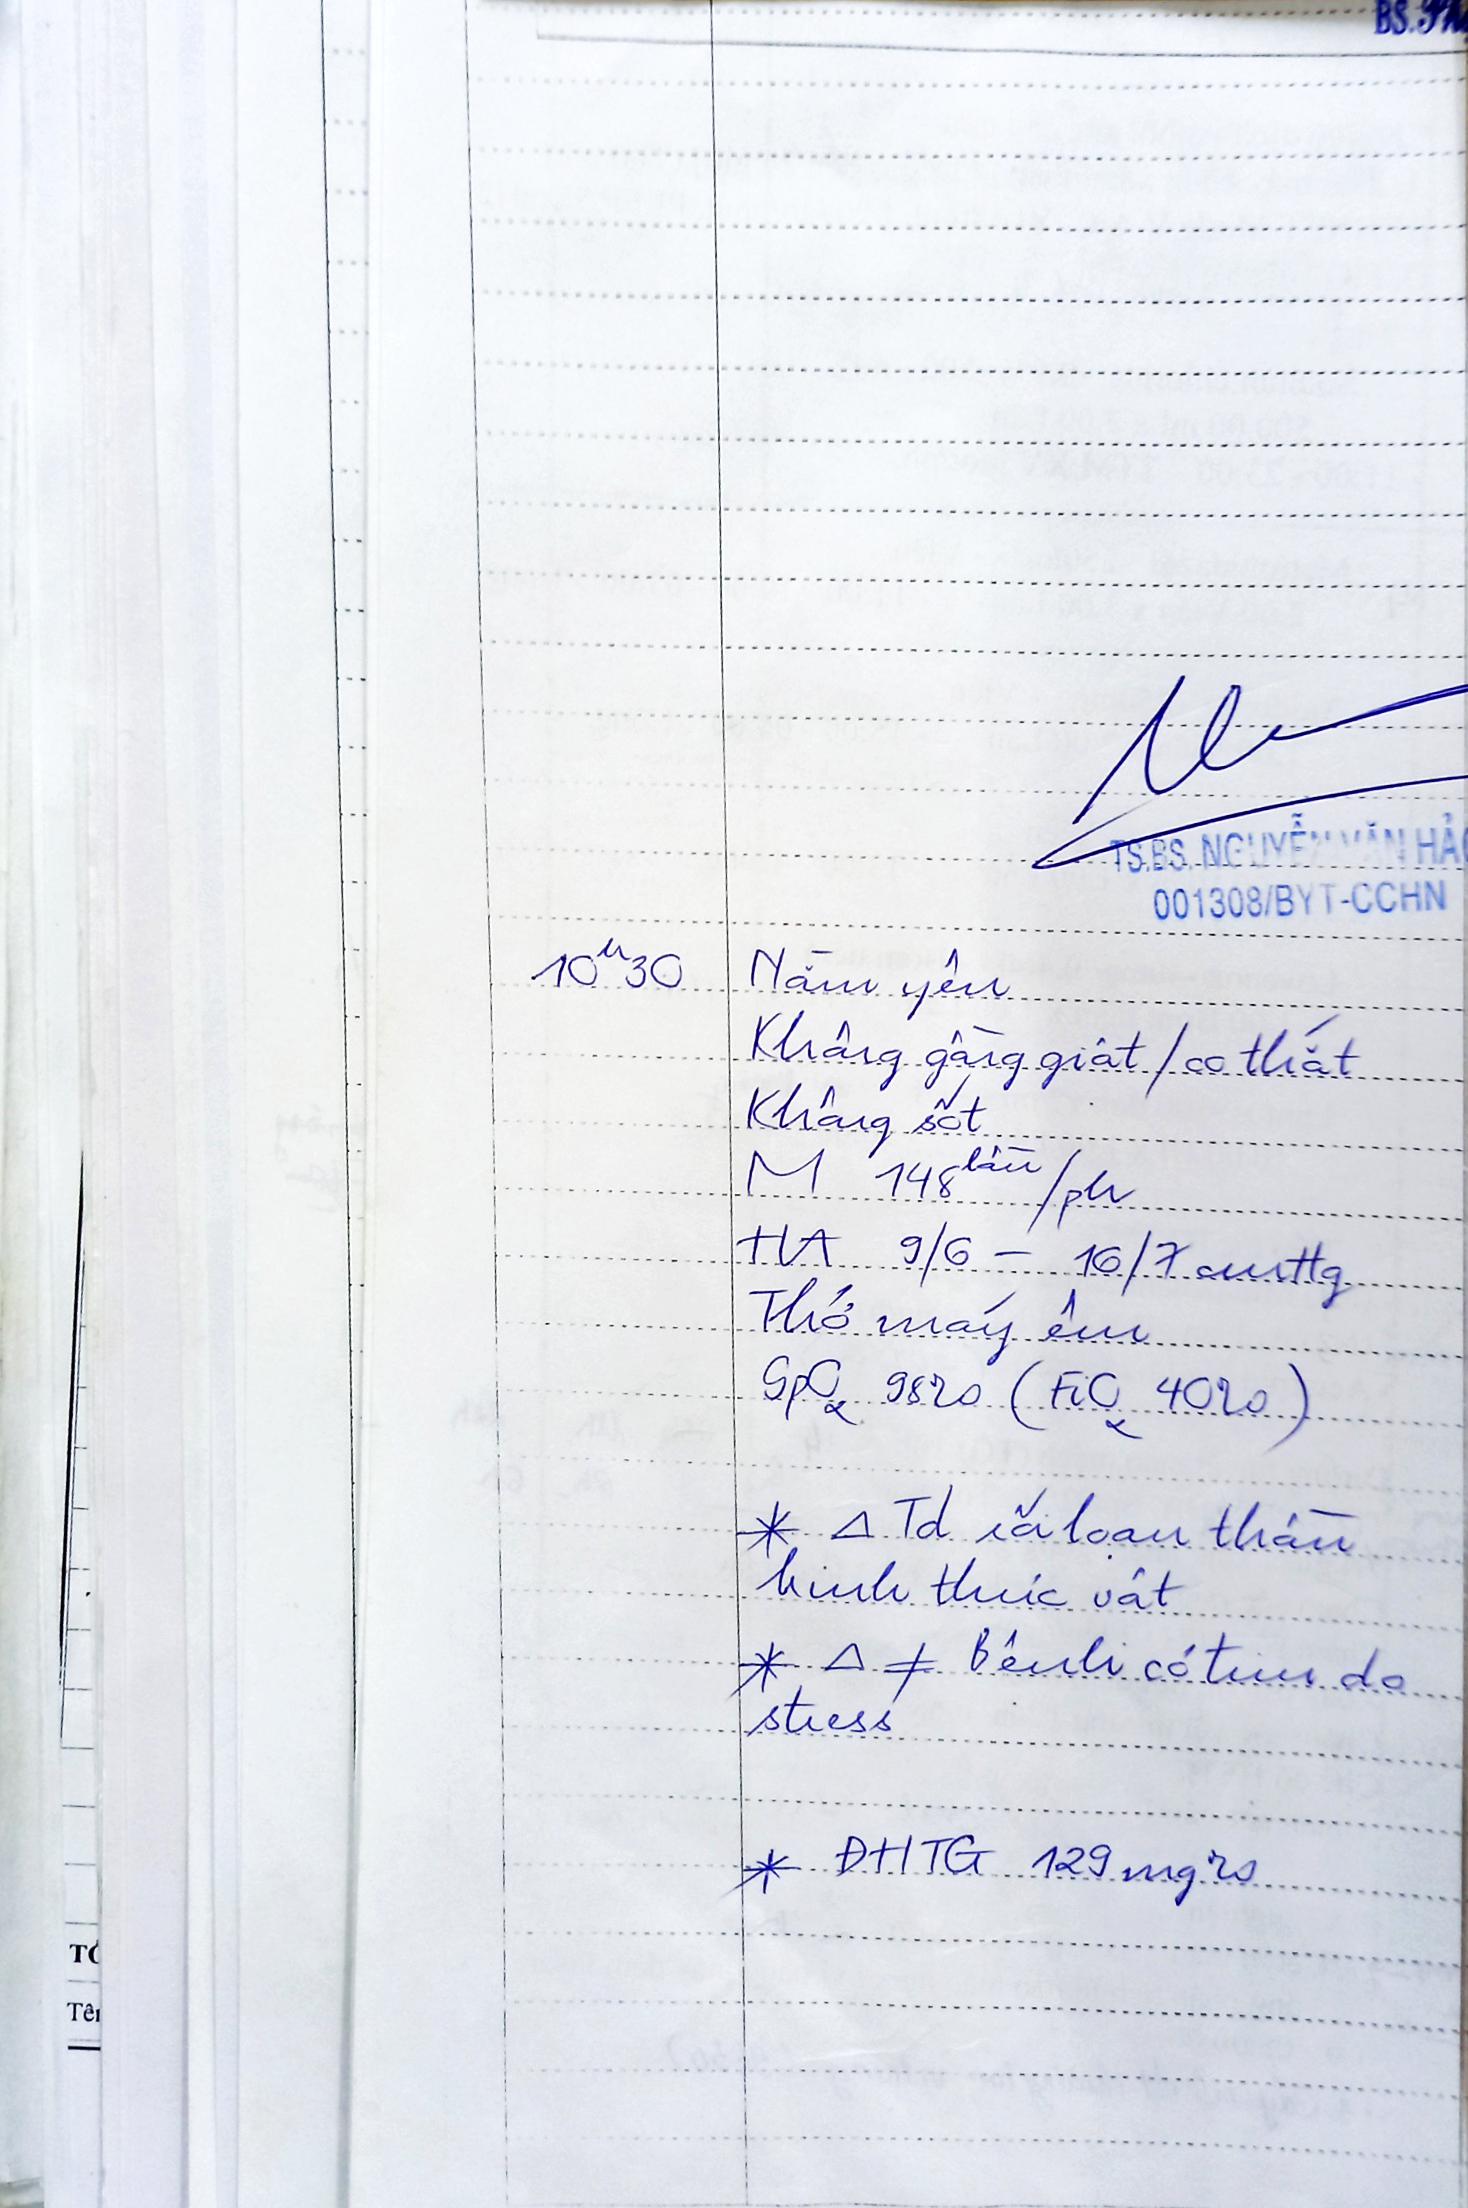 BS.
TS.BS. NGUYỄN VĂN HẢO
001308/BYT-CCHN
10h30 Nằm yên
Không gồng giật / co thắt
Không sốt
M 148 lần/ph
HA 9/6 – 16/7 cmHg
Thở máy êm
SpO2 98% (FiO2 40%)
* Δ Td rối loạn thần
kinh thực vật
* Δ ≠ Bệnh cơ tim do
stress
* ĐHTG 129 mg%
TÓ
Tên